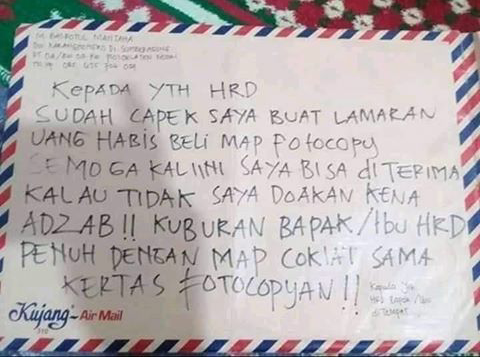 KEPADA YTH HRD
SUDAH CAPEK SAYA BUAT LAMARAN
UANG HABIS BELI MAP FOTOCOPY
SEMOGA KALIINI SAYA BISA diTERIMA
KALAU TIDAK SAYA DOAKAN KENA
ADZAB!! KUBURAN BAPAK/Ibu HRD
PENUH DENGAN MAP COKLAT SAMA
KERTAS FOTOCOPYAN!!
Kepada Yth
HRD Bapak/Ibu
diTempat
Kujang - Air Mail